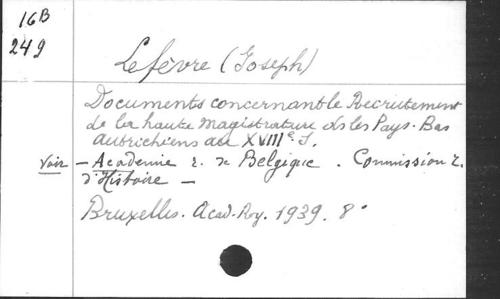 16B
249
Lefèvre (Joseph)
Documents concernant le Recrutement
de la haute Magistrature ds les Pays-Bas
autrichiens au XVIIIe S.
Voir - Academie r. de Belgique. Commission r.
d'Histoire -
Bruxelles. Acad. Roy. 1939. 8°